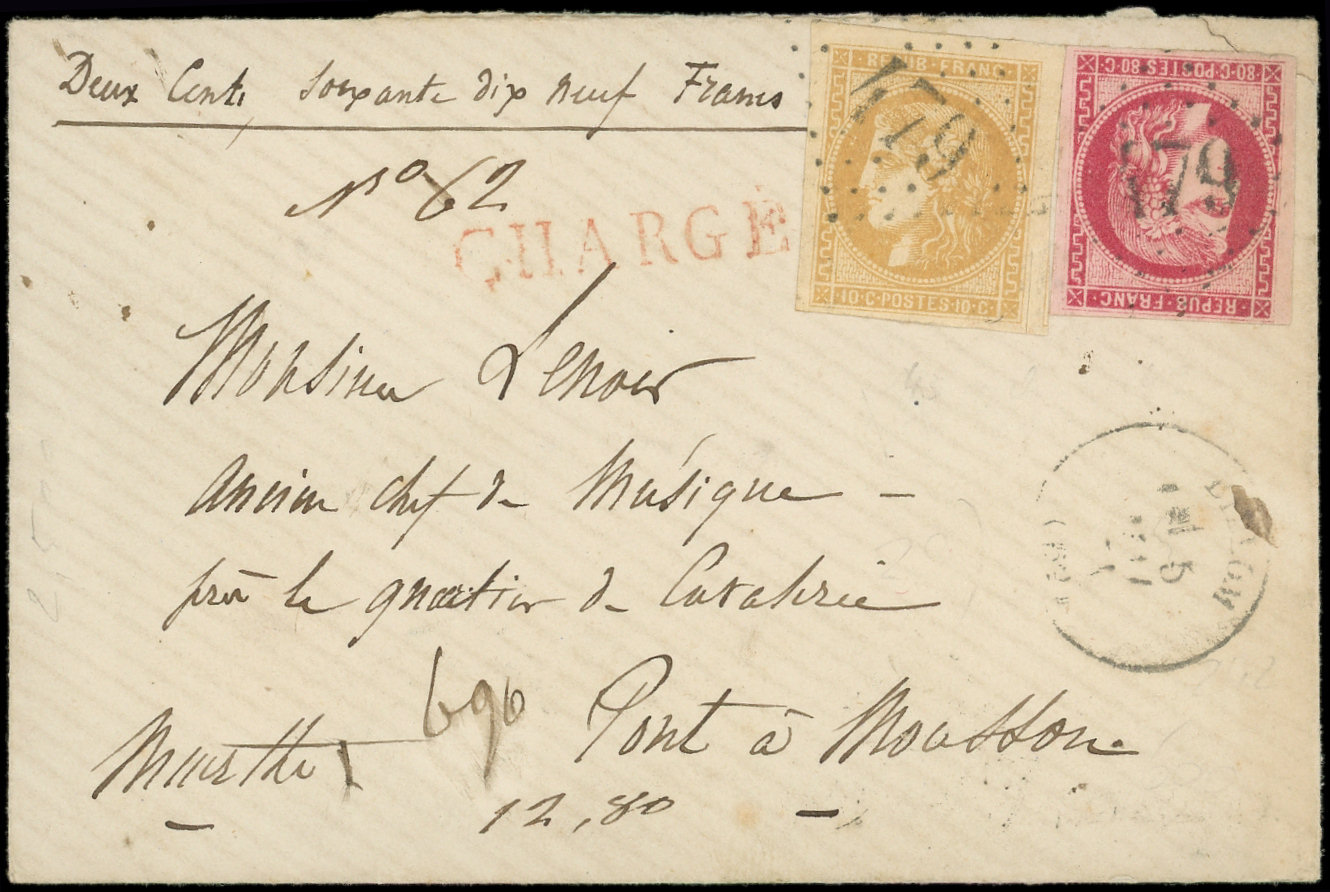 Deux Cents Soixante dix neuf Francs
N° 62
CHARGÉ
REPUB·FRANC·
10·C·POSTES·10·C·
80·C·POSTES·80·C·
REPUB·FRANC·
Monsieur Lenoir
Ancien chef de Musique
près le quartier de Cavalerie
696
Pont à Mousson
Meurthe
12,80